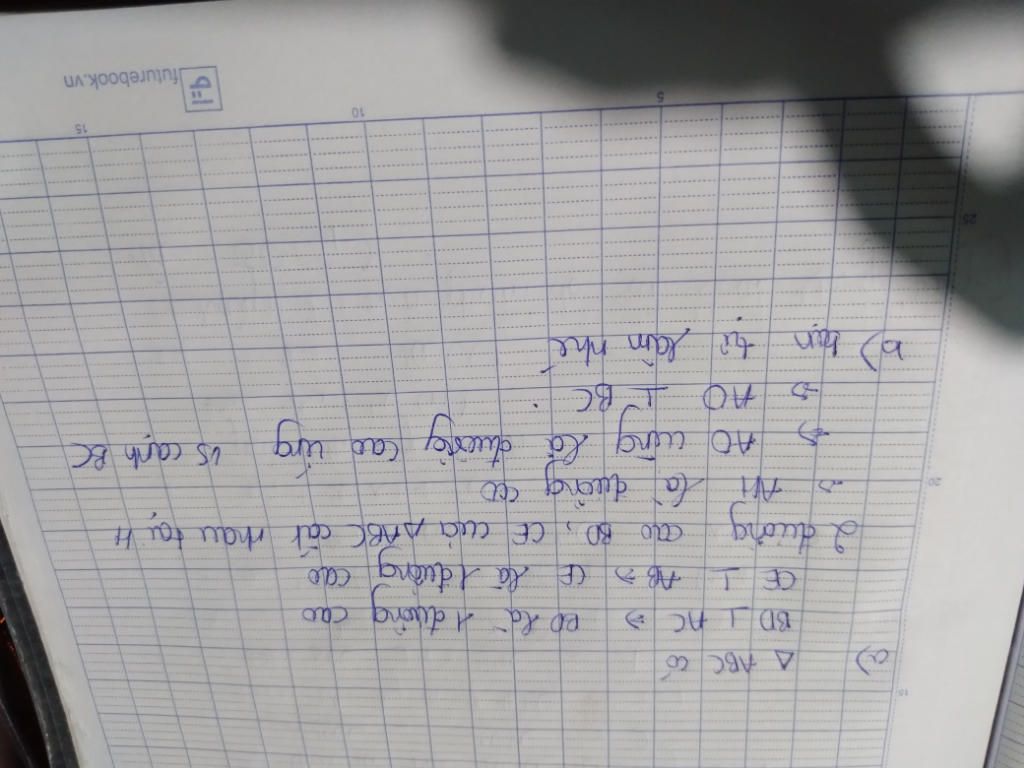 15
a) Δ ABC có
BD ⊥ AC => BD là 1 đường cao
CE ⊥ AB => CE là 1 đường cao
2 đường cao BD, CE của ΔABC cắt nhau tại H
=> AH là đường cao
20
=> AO cũng là đường cao ứng vs cạnh BC
=> AO ⊥ BC
b) bạn tự làm nhé
25
5 10 15
futurebook.vn